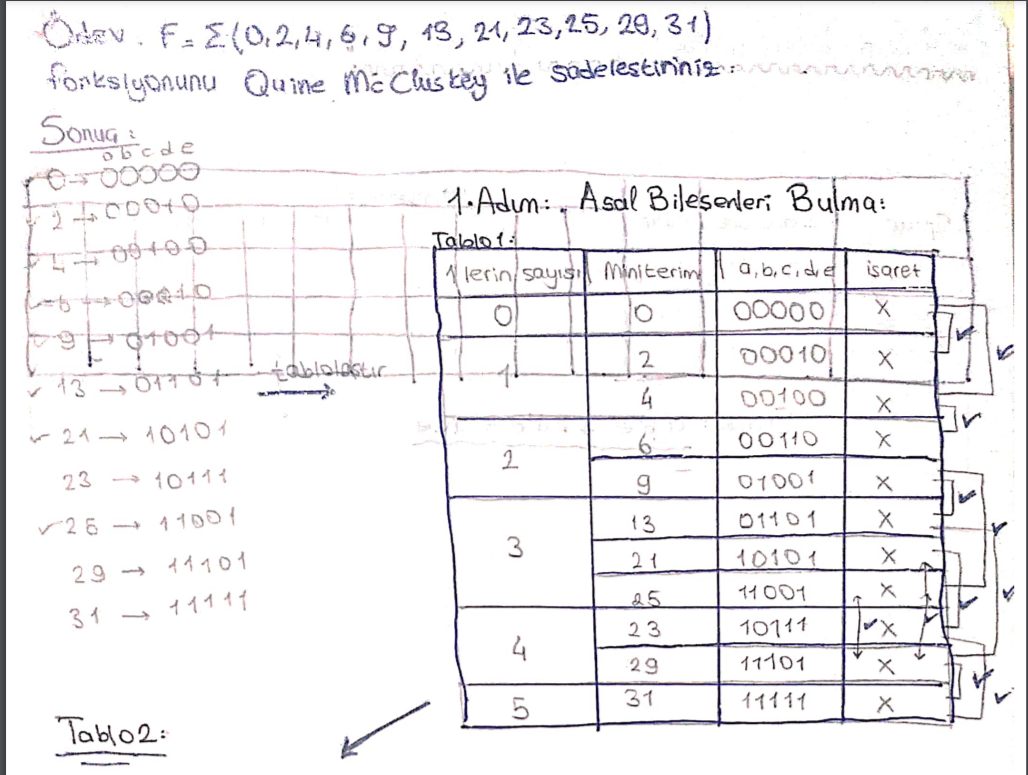 Ödev. F= Σ(0,2,4,6,9, 13, 21, 23, 25, 29, 31)
fonksiyonunu Quine Mc Cluskey ile sadeleştiriniz.
Sonuç:
a b c d e
0 → 00000
2 → 00010
4 → 00100
6 → 00110
9 → 01001
✓ 13 → 01101 tablolaştır
✓ 21 → 10101
23 → 10111
✓ 25 → 11001
29 → 11101
31 → 11111
1. Adım: Asal Bileşenleri Bulma:
Tablo1:
1'lerin sayısı Miniterim a,b,c,d,e işaret
0 0 00000 X
1 2 00010 X
4 00100 X
2 6 00110 X
9 01001 X
3 13 01101 X
21 10101 X
25 11001 X
4 23 10111 X
29 11101 X
5 31 11111 X
Tablo2: